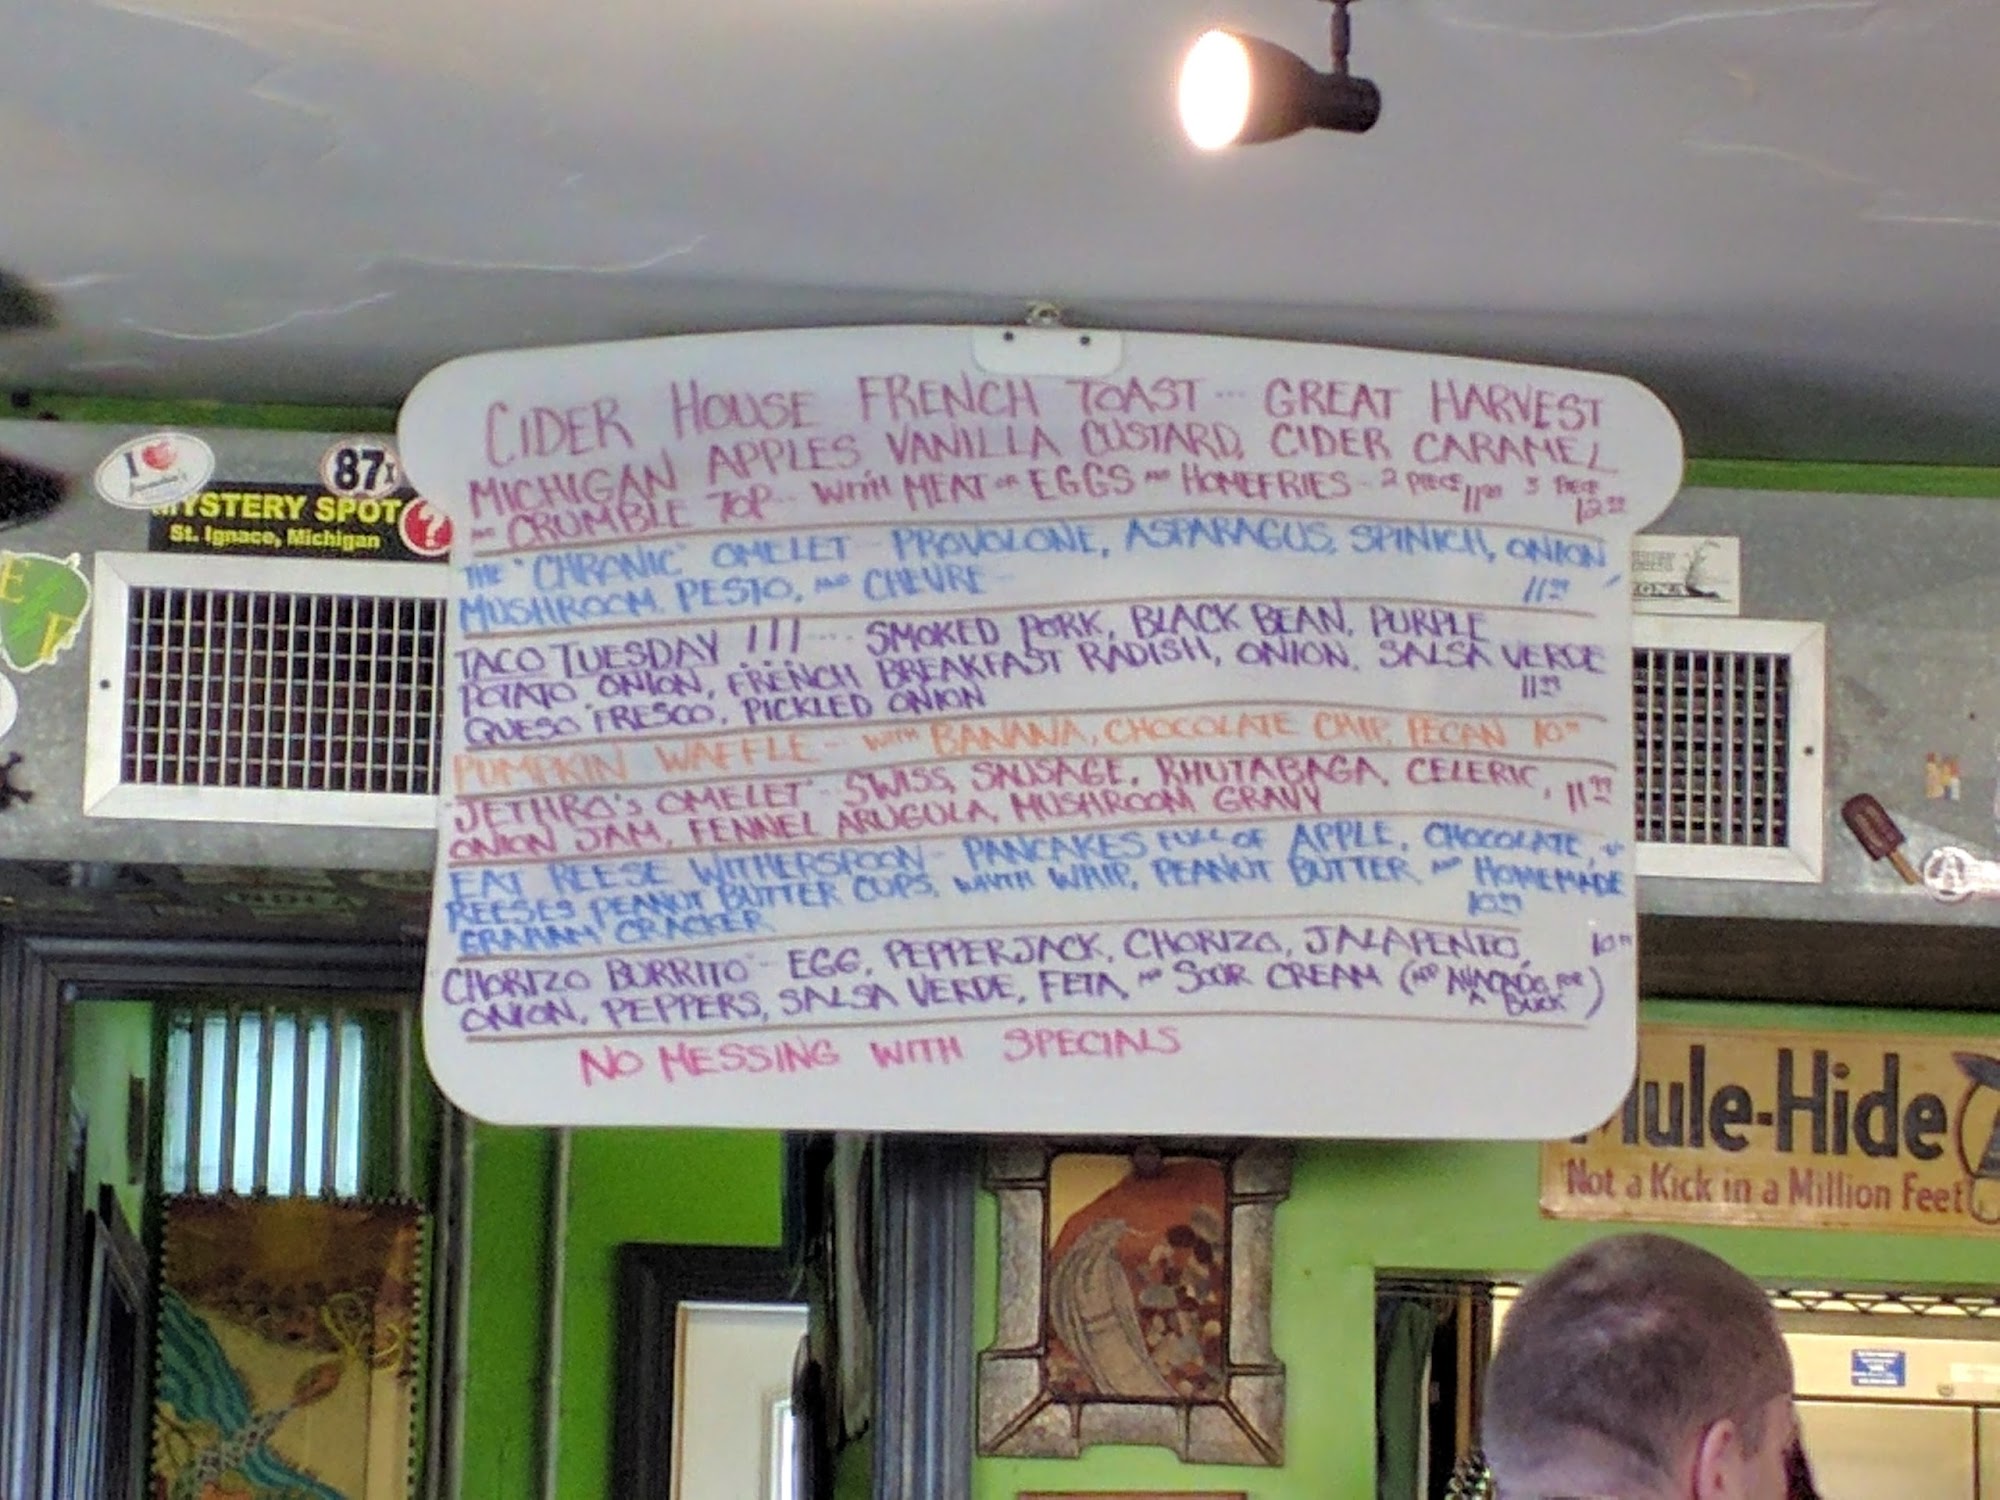 CIDER HOUSE FRENCH TOAST ... GREAT HARVEST
MICHIGAN APPLES, VANILLA CUSTARD, CIDER CARAMEL
CRUMBLE TOP -- WITH MEAT OR EGGS AND HOMEFRIES - 2 PIECE 11.99 3 PIECE 12.99
THE "CHRONIC" OMELET - PROVOLONE, ASPARAGUS, SPINICH, ONION,
MUSHROOM, PESTO, AND CHEVRE - 11.99
TACO TUESDAY !!! .... SMOKED PORK, BLACK BEAN, PURPLE
POTATO ONION, FRENCH BREAKFAST RADISH, ONION, SALSA VERDE
QUESO FRESCO, PICKLED ONION 11.99
PUMPKIN WAFFLE -- WITH BANANA, CHOCOLATE CHIP, PECAN 10
"JETHRO'S OMELET" - SWISS, SAUSAGE, RHUTABAGA, CELERIC,
ONION JAM, FENNEL, ARUGULA, MUSHROOM GRAVY 11.99
EAT REESE WITHERSPOON - PANCAKES FULL OF APPLE, CHOCOLATE, +
REESES PEANUT BUTTER CUPS, WITH WHIP, PEANUT BUTTER AND HOMEMADE
GRAHAM CRACKER 10
"CHORIZO BURRITO" - EGG, PEPPERJACK, CHORIZO, JALAPENIO, 10
ONION, PEPPERS, SALSA VERDE, FETA, AND SOUR CREAM (ADD AVACADO FOR A BUCK)
NO MESSING WITH SPECIALS
I
87X
MYSTERY SPOT
St. Ignace, Michigan
?
Mule-Hide
Not a Kick in a Million Feet